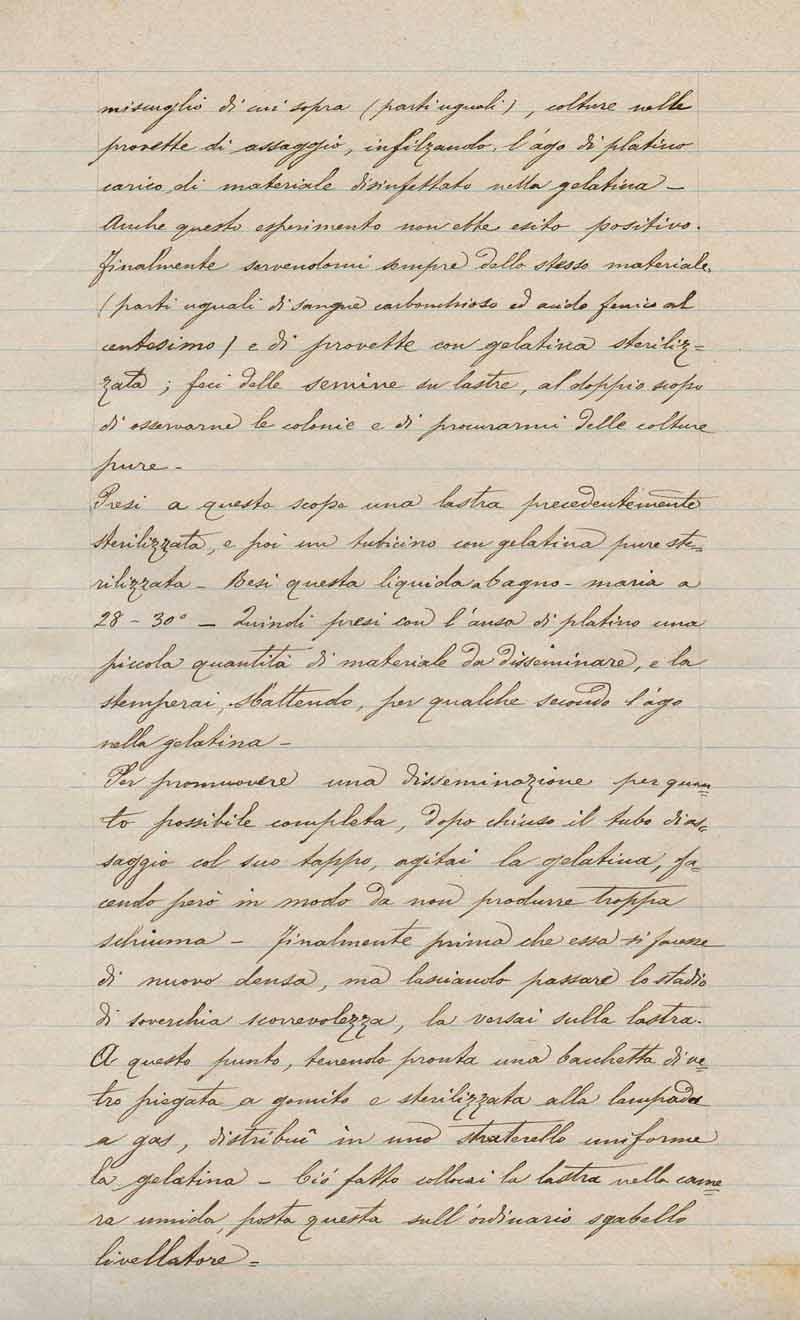 miscuglio di cui sopra (parti uguali), colture nelle
provette di assaggio, infilzando l'ago di platino
carico di materiale disinfettato nella gelatina —
Anche questo esperimento non ebbe esito positivo.
Finalmente servendomi sempre dello stesso materiale,
(parti uguali di sangue carbonchioso ed acido fenico al
centesimo) e di provette con gelatina steriliz=
zata; feci delle semine su lastre, al doppio scopo
di osservarne le colonie e di procurarmi delle colture
pure —
Presi a questo scopo una lastra precedentemente
sterilizzata, e poi un tubicino con gelatina pure ste=
rilizzata — Resi questa liquida a bagno-maria a
28 - 30° — Quindi presi con l'ansa di platino una
piccola quantità di materiale da disseminare, e la
stemperai, sbattendo, per qualche secondo l'ago
nella gelatina —
Per promuovere una disseminazione per quan=
to possibile completa, dopo chiuso il tubo di as=
saggio col suo tappo, agitai la gelatina, fa=
cendo però in modo da non produrre troppa
schiuma — Finalmente prima che essa si facesse
di nuovo densa, ma lasciando passare lo stadio
di soverchia scorrevolezza, la versai sulla lastra.
A questo punto, tenendo pronta una bacchetta di ve=
tro piegata a gomito e sterilizzata alla lampada
a gas, distribuî in uno straterello uniforme
la gelatina — Ció fatto collocai la lastra nella came=
ra umida, posta questa sull'ordinario sgabello
livellatore =